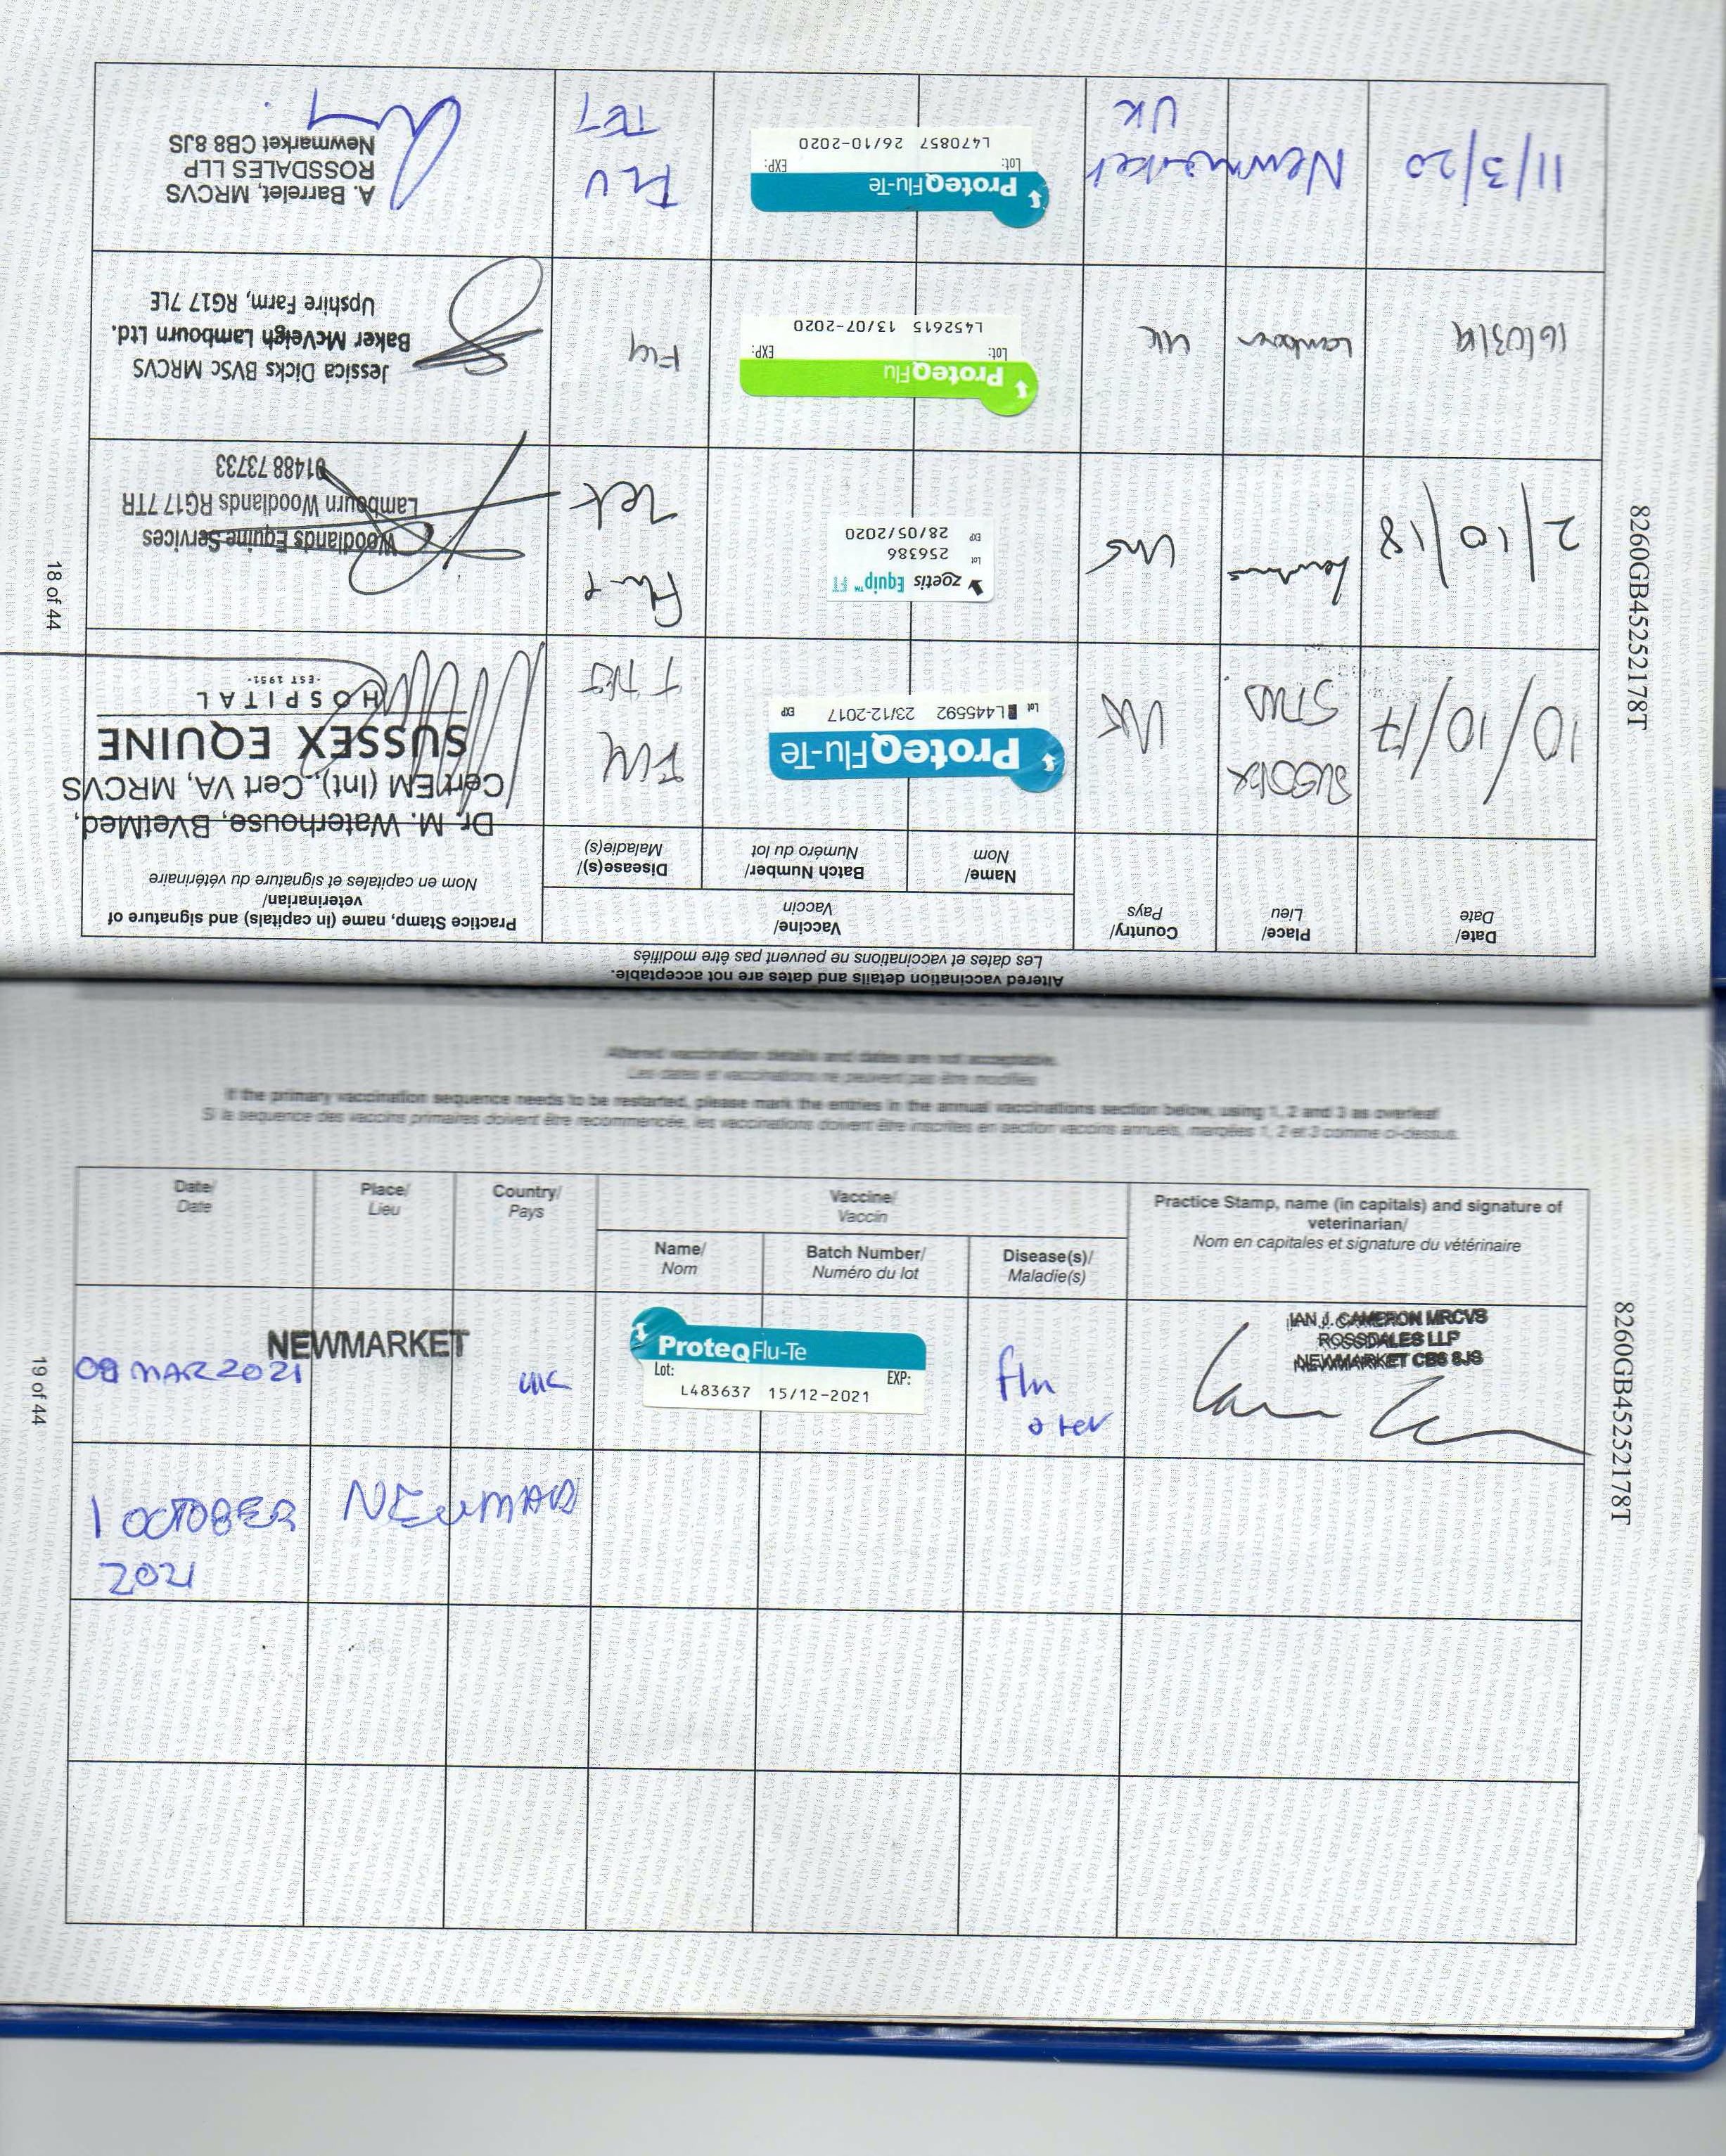 Altered vaccination details and dates are not acceptable.
Les dates et vaccinations ne peuvent pas être modifiés
Date/
Date
Place/
Lieu
Country/
Pays
Vaccine/
Vaccin
Name/
Nom
Batch Number/
Numéro du lot
Disease(s)/
Maladie(s)
Practice Stamp, name (in capitals) and signature of
veterinarian/
Nom en capitales et signature du vétérinaire
10/10/17
STUD
UK
ProteqFlu-Te
Lot L445592 23/12-2017 EXP
Flu
TET
Dr. M. Waterhouse, BVetMed,
Cert EM (Int), Cert VA, MRCVS
SUSSEX EQUINE
HOSPITAL
-EST 1951-
2/10/18
UK
zoetis Equip™ FT
Lot 256386
EXP 28/05/2020
Flu +
Tet
Woodlands Equine Services
Lambourn Woodlands RG17 7TR
01488 73733
16/03/19
Lambourn
UK
ProteqFlu
Lot: EXP:
L452615 13/07-2020
Flu
Jessica Dicks BVSc MRCVS
Baker McVeigh Lambourn Ltd.
Upshire Farm, RG17 7LE
11/3/20
Newmarket
UK
ProteqFlu-Te
Lot: EXP:
L470857 26/10-2020
FLU
TET
A. Barrelet, MRCVS
ROSSDALES LLP
Newmarket CB8 8JS
8260GB45252178T
18 of 44
Altered vaccination details and dates are not acceptable.
Les dates et vaccinations ne peuvent pas être modifiés
If the primary vaccination sequence needs to be restarted, please mark the entries in the annual vaccinations section below, using 1, 2 and 3 as overleaf
Si la sequence des vaccins primaires doivent être recommencée, les vaccinations doivent être inscrites en section vaccins annuels, marqées 1, 2 et 3 comme ci-dessus.
Date/
Date
Place/
Lieu
Country/
Pays
Vaccine/
Vaccin
Name/
Nom
Batch Number/
Numéro du lot
Disease(s)/
Maladie(s)
Practice Stamp, name (in capitals) and signature of
veterinarian/
Nom en capitales et signature du vétérinaire
MAR 2021
NEWMARKET
UK
ProteqFlu-Te
Lot: EXP:
L483637 15/12-2021
flu
IAN J. CAMERON MRCVS
ROSSDALES LLP
NEWMARKET CB8 8JS
1 OCTOBER
2021
8260GB45252178T
19 of 44